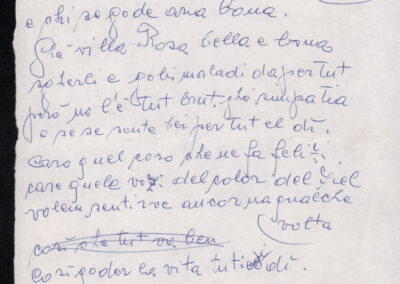 e chi se gode aria bona.
Ghè villa Rosa bella e bona
però no l'è tut brut, ghè simpatia
e se se sente bei per tut el dì.
Caro quel coro che ne fa felici
care quele voz del color del ciel
volem sentirve ancor na qualche
volta
così che tut va ben
Così goder la vita tuti dì.